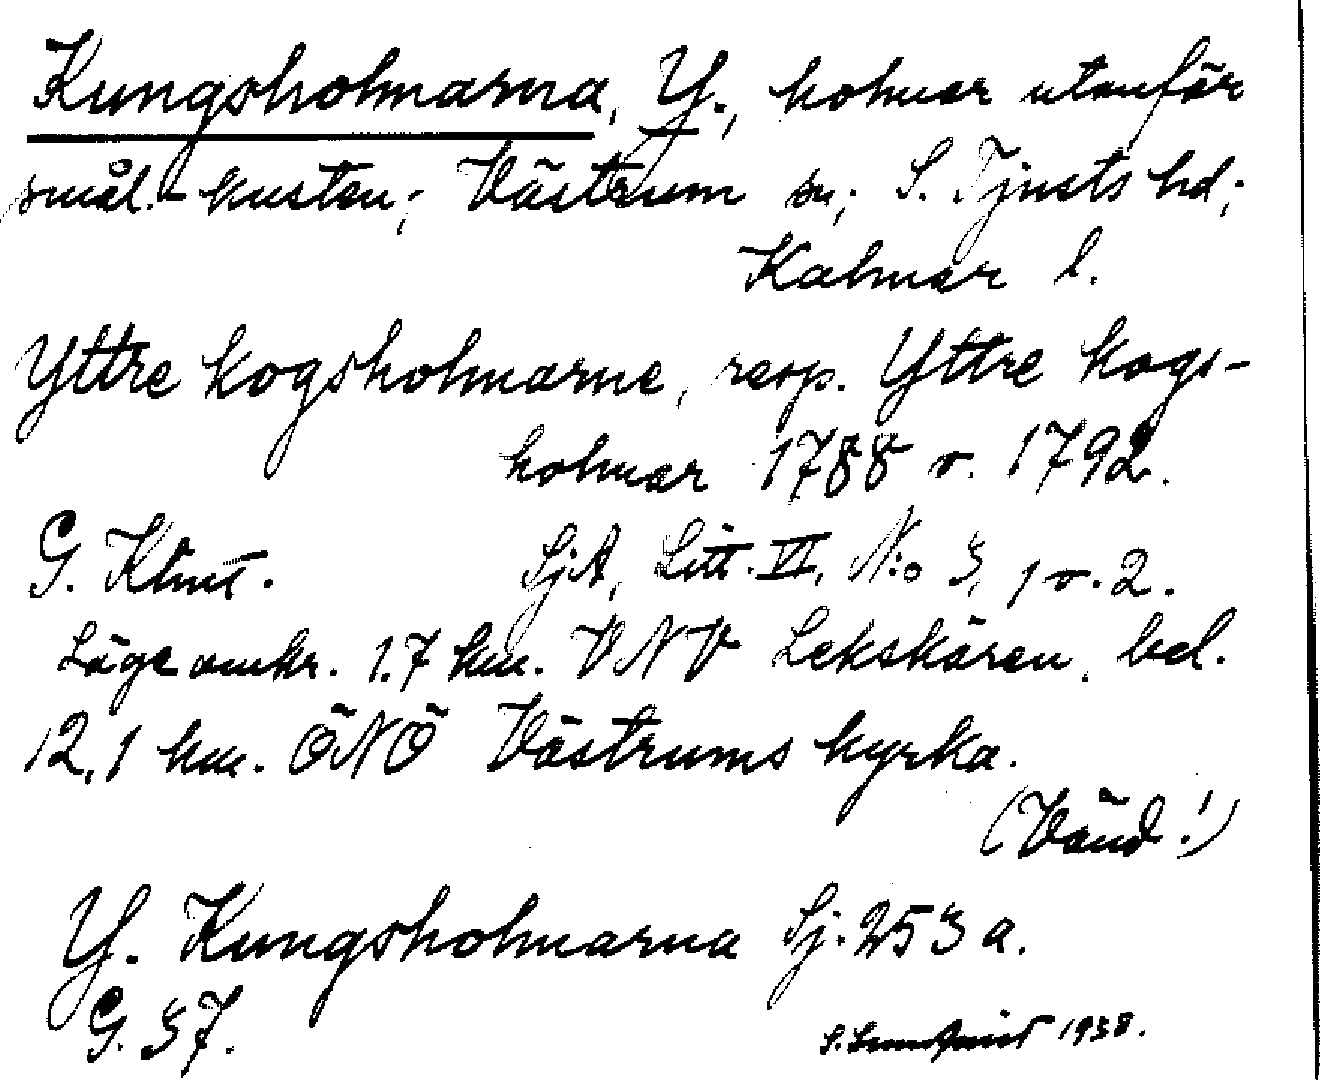 Kungsholmarna, Y., holmar utanför
smål. kusten; Västrum sn; S. Tjusts hd;
Kalmar l.
Yttre kogsholmarne, resp. Yttre kogs-
holmar 1788 o. 1792.
G. Klint. SjA, Litt. VI, N:o 3, 1 o. 2.
Läge omkr. 1.7 km. VNV Lekskären, bel.
12,1 km. ÖNÖ Västrums kyrka.
(Vänd!)
Y. Kungsholmarna Sj. 253 a.
G. 37.
1938.